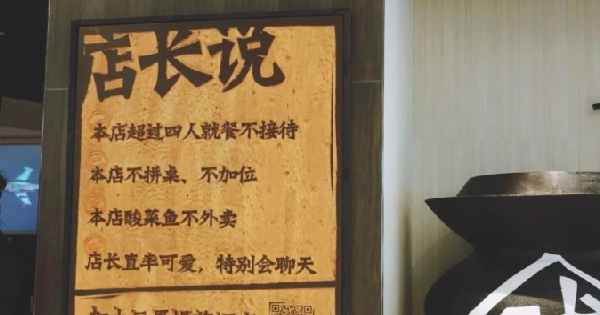 店长说
本店超过四人就餐不接待
本店不拼桌、不加位
本店酸菜鱼不外卖
店长直率可爱，特别会聊天